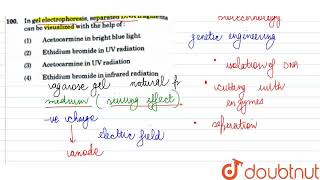 100. In gel electrophoresis, separated DNA fragments
can be visualized with the help of :
(1) Acetocarmine in bright blue light
(2) Ethidium bromide in UV radiation
(3) Acetocarmine in UV radiation
(4) Ethidium bromide in infrared radiation
agarose gel natural
medium (sieving effect)
-ve charge
electric field
anode
biotechnology
genetic engineering
isolation of DNA
cutting with
enzymes
seperation
doubtnut